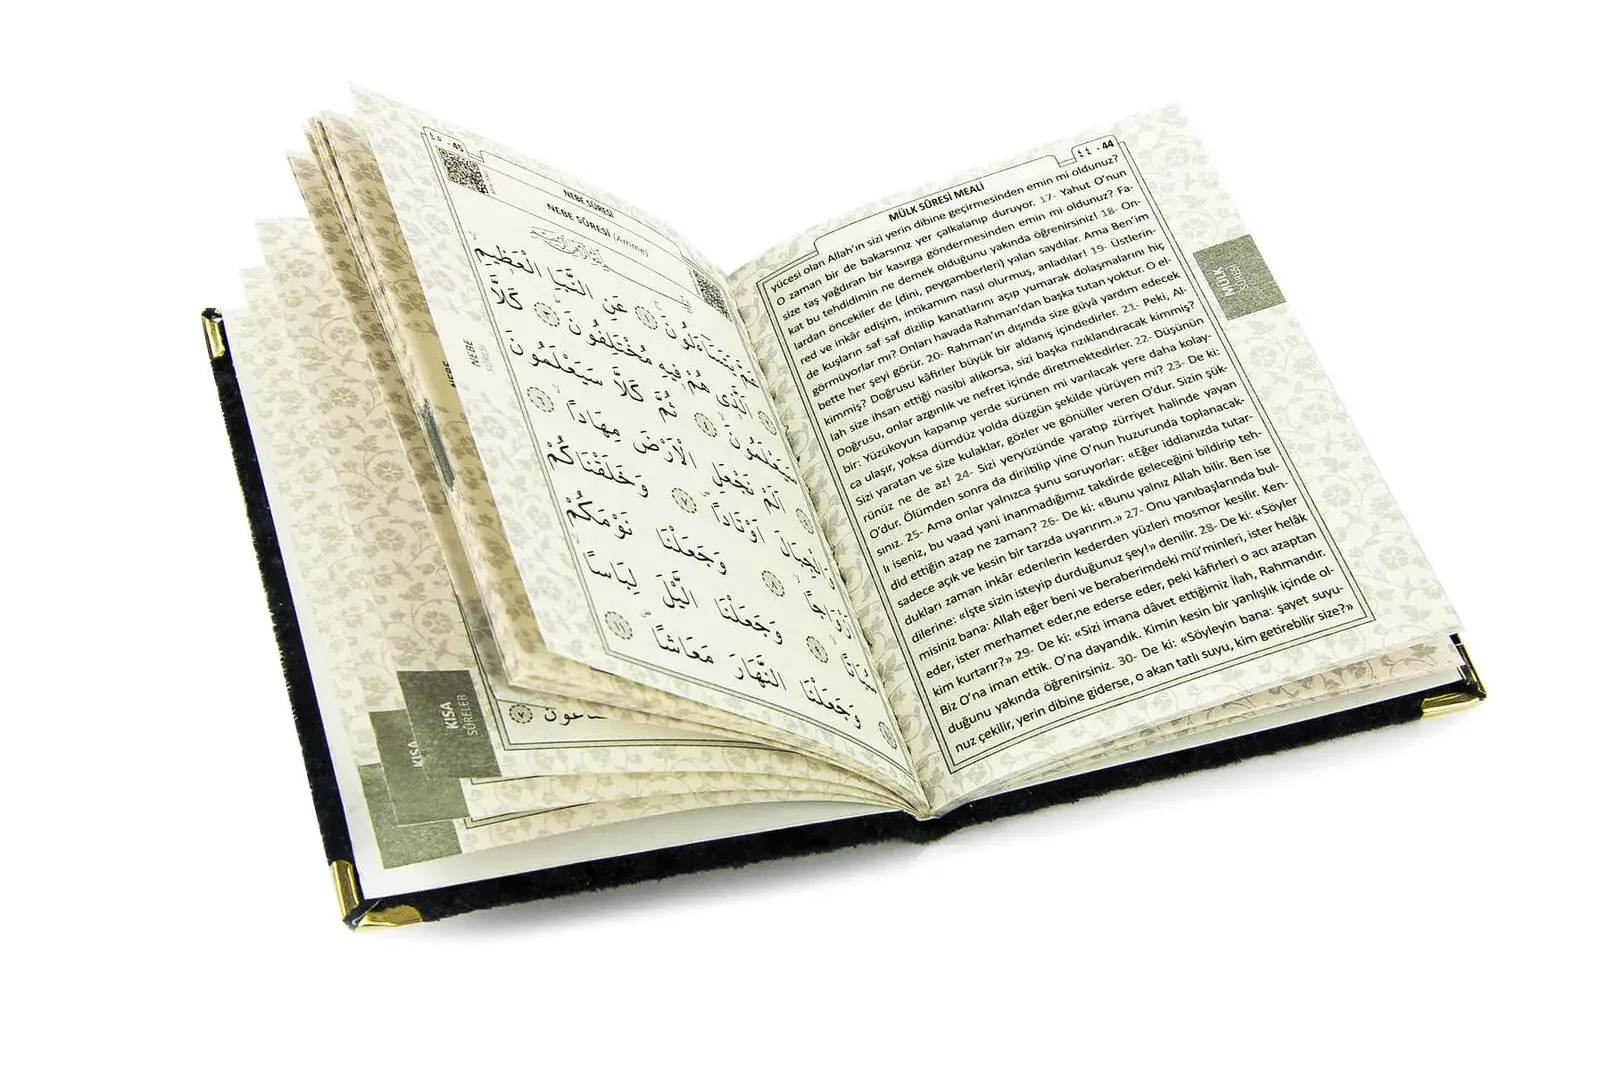 ٤٤ - 44
MÜLK SÛRESİ MEALİ
yücesi olan Allah'ın sizi yerin dibine geçirmesinden emin mi oldunuz?
O zaman bir de bakarsınız yer çalkalanıp duruyor. 17- Yahut O'nun
size taş yağdıran bir kasırga göndermesinden emin mi oldunuz? Fa-
kat bu tehdidimin ne demek olduğunu yakında öğrenirsiniz! 18- On-
lardan öncekiler de (dini, peygamberleri) yalan saydılar. Ama Ben'im
red ve inkâr edişim, intikamım nasıl olurmuş, anladılar! 19- Üstlerin-
de kuşların saf saf dizilip kanatlarını açıp yumarak dolaşmalarını hiç
görmüyorlar mı? Onları havada Rahman'dan başka tutan yoktur. O el-
bette her şeyi görür. 20- Rahman'ın dışında size gûyâ yardım edecek
kimmiş? Doğrusu kâfirler büyük bir aldanış içindedirler. 21- Peki, Al-
lah size ihsan ettiği nasibi alıkorsa, sizi başka rızıklandıracak kimmiş?
Doğrusu, onlar azgınlık ve nefret içinde diretmektedirler. 22- Düşünün
bir: Yüzükoyun kapanıp yerde sürünen mi varılacak yere daha kolay-
ca ulaşır, yoksa dümdüz yolda düzgün şekilde yürüyen mi? 23- De ki:
Sizi yaratan ve size kulaklar, gözler ve gönüller veren O'dur. Sizin şük-
rünüz ne de az! 24- Sizi yeryüzünde yaratıp zürriyet halinde yayan
O'dur. Ölümden sonra da diriltilip yine O'nun huzurunda toplanacak-
sınız. 25- Ama onlar yalnızca şunu soruyorlar: «Eğer iddianızda tutar-
lı iseniz, bu vaad yani inanmadığımız takdirde geleceğini bildirip teh-
did ettiğin azap ne zaman? 26- De ki: «Bunu yalnız Allah bilir. Ben ise
sadece açık ve kesin bir tarzda uyarırım.» 27- Onu yanıbaşlarında bul-
dukları zaman inkâr edenlerin kederden yüzleri mosmor kesilir. Ken-
dilerine: «İşte sizin isteyip durduğunuz şey!» denilir. 28- De ki: «Söyler
misiniz bana: Allah eğer beni ve beraberimdeki mü'minleri, ister helâk
eder, ister merhamet eder,ne ederse eder, peki kâfirleri o acı azaptan
kim kurtarır?» 29- De ki: «Sizi imana dâvet ettiğimiz İlah, Rahmandır.
Biz O'na iman ettik. O'na dayandık. Kimin kesin bir yanlışlık içinde ol-
duğunu yakında öğrenirsiniz. 30- De ki: «Söyleyin bana: şayet suyu-
nuz çekilir, yerin dibine giderse, o akan tatlı suyu, kim getirebilir size?»
MÜLK
SÛRESİ
٤٥ - 45
NEBE SÛRESİ
NEBE SÛRESİ (Amme)
عَمَّ يَتَسَاءَلُونَ ۝١ عَنِ النَّبَأِ الْعَظِيمِ
۝٢ الَّذِي هُمْ فِيهِ مُخْتَلِفُونَ ۝٣ كَلَّا
سَيَعْلَمُونَ ۝٤ ثُمَّ كَلَّا سَيَعْلَمُونَ
۝٥ اَلَمْ نَجْعَلِ الْاَرْضَ مِهَاداً ۝٦
وَالْجِبَالَ اَوْتَاداً ۝٧ وَخَلَقْنَاكُمْ
اَزْوَاجاً ۝٨ وَجَعَلْنَا نَوْمَكُمْ
سُبَاتاً ۝٩ وَجَعَلْنَا الَّيْلَ لِبَاساً
۝١٠ وَجَعَلْنَا النَّهَارَ مَعَاشاً
NEBE
SÛRESİ
NEBE
KISA
SÛRELER
KISA